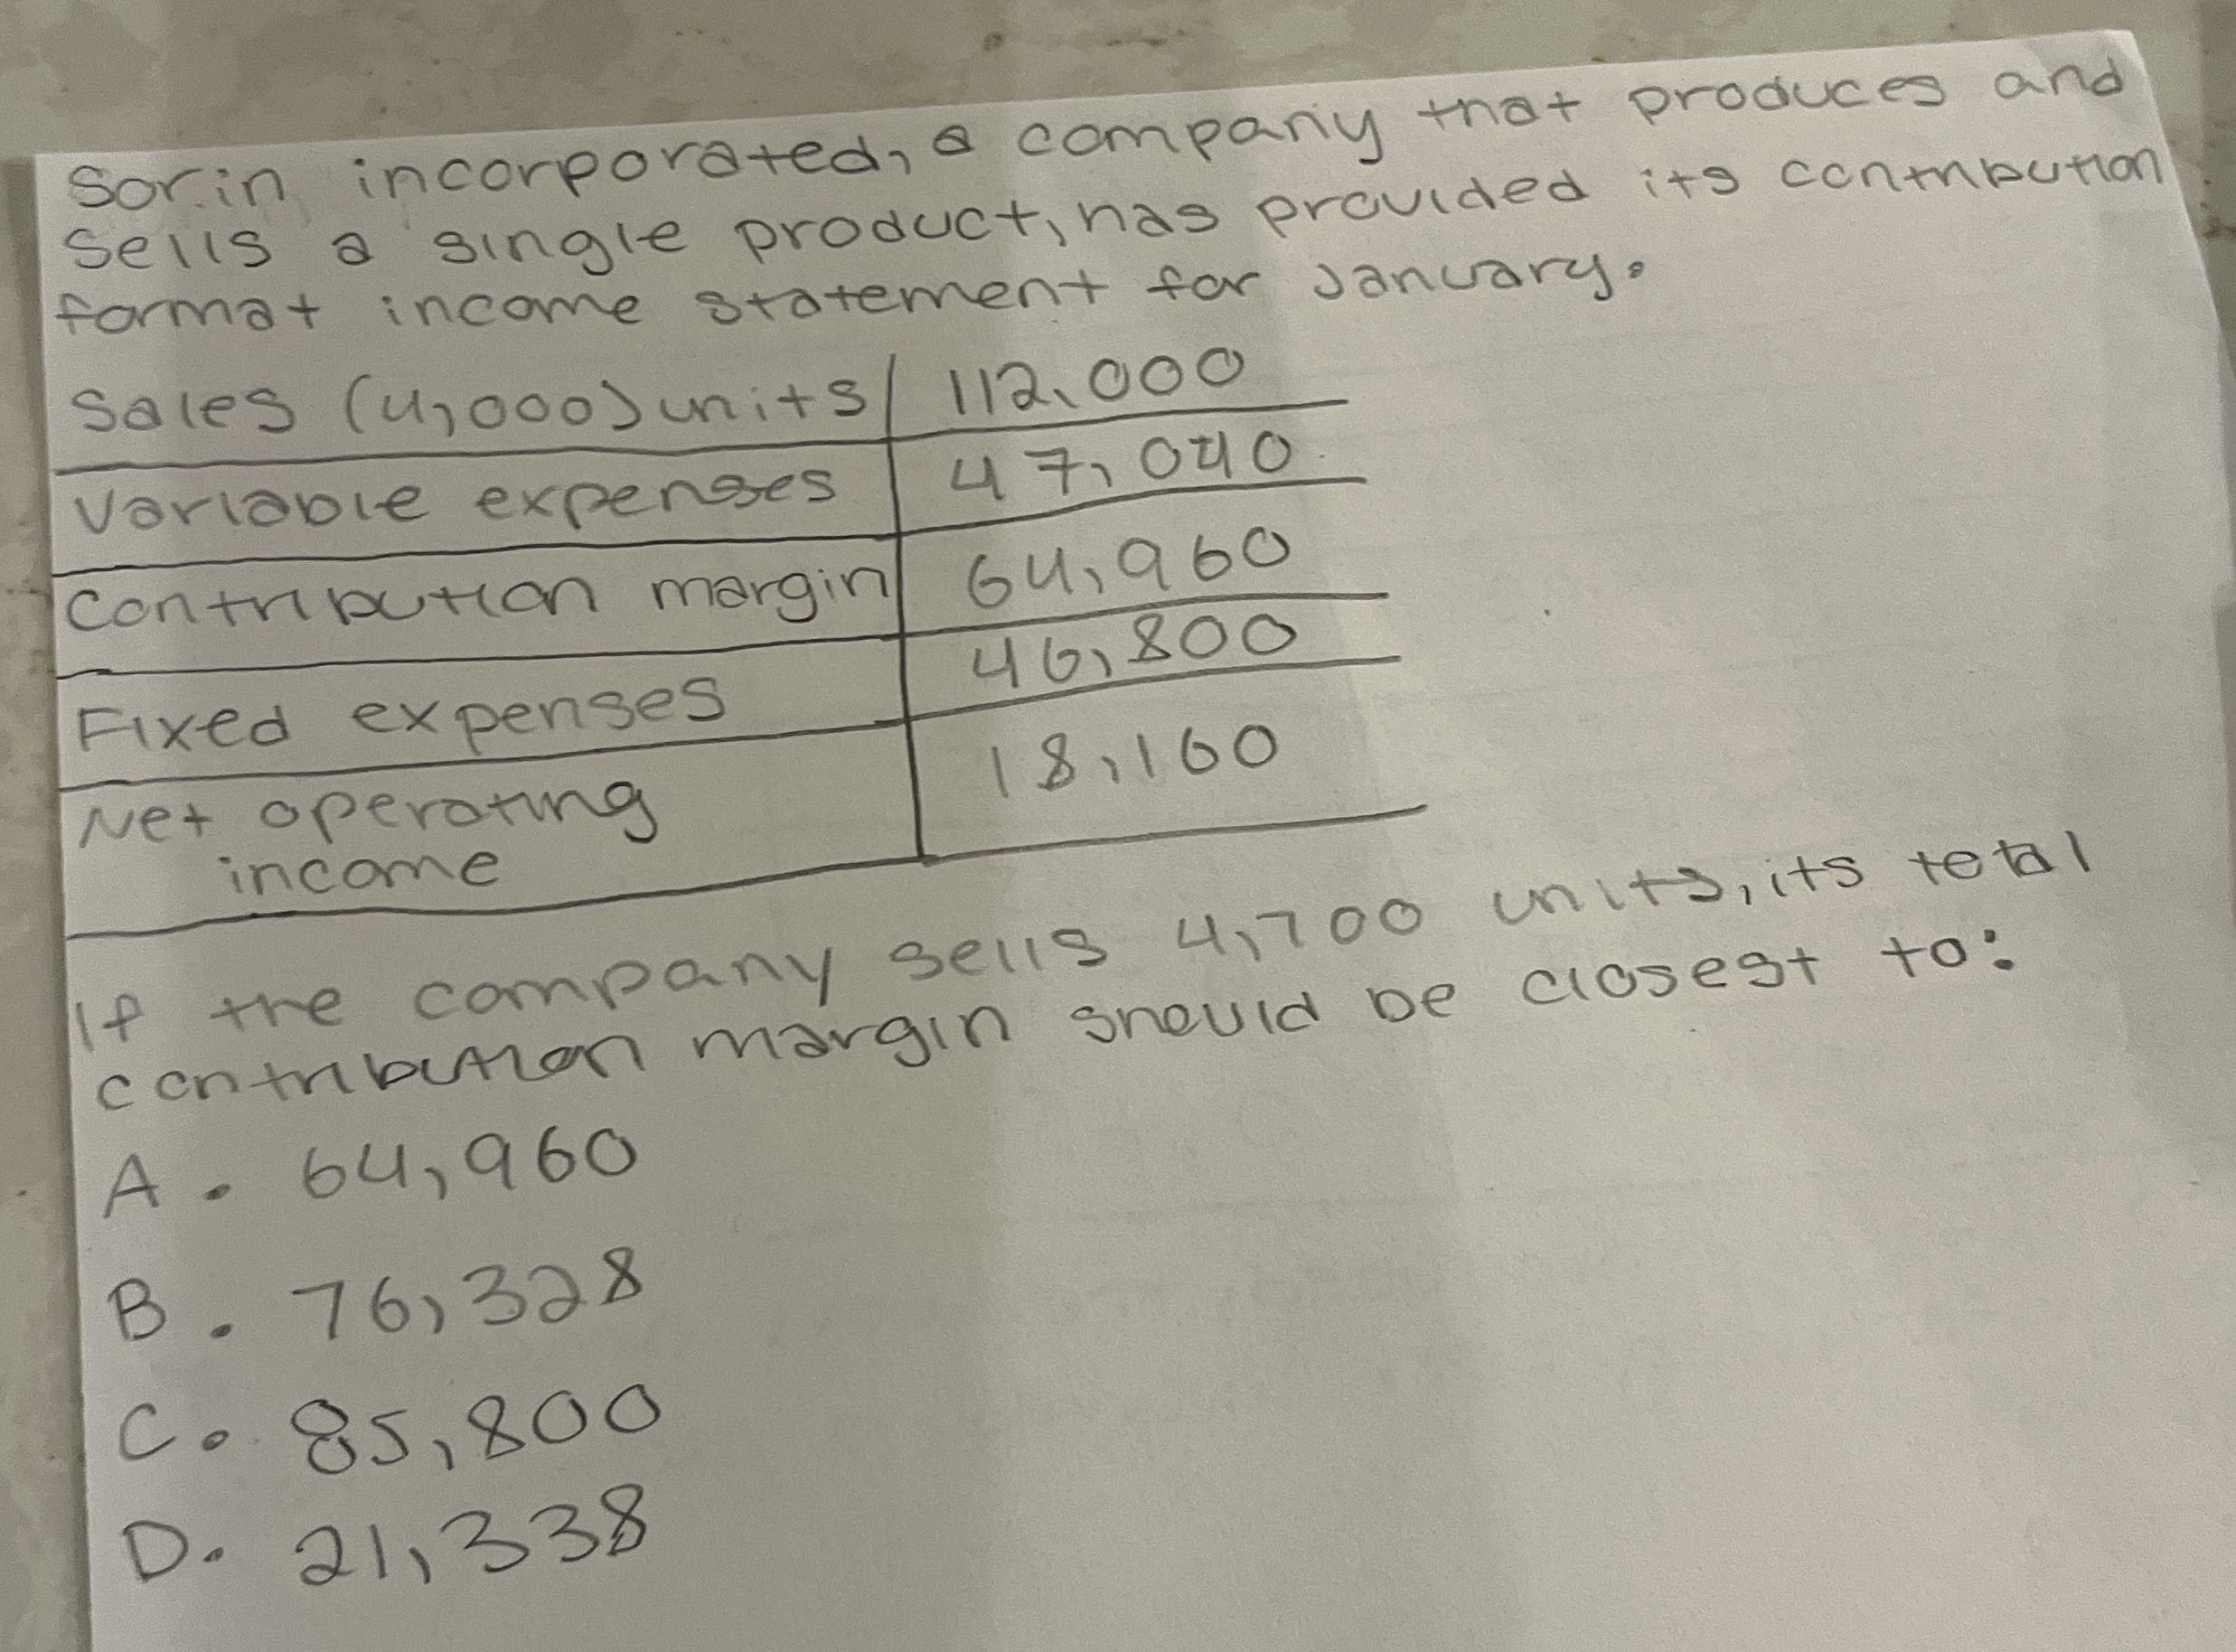 Sorin incorporated, a company that produces and
sells a single product, has provided its contribution
format income statement for January.
Sales (4,000) units 112,000
Variable expenses 47,040
Contribution margin 64,960
Fixed expenses 46,800
Net operating 18,160
income
If the company sells 4,700 units, its total
contribution margin should be closest to:
A. 64,960
B. 76,328
C. 85,800
D. 21,338